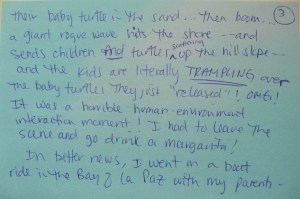 ③
their baby turtle in the sand... then boom...
a giant rogue wave hits the shore -- and
sends children and turtles swimming up the hill slope --
and the kids are literally TRAMPLING over
the baby turtles they just "released"! OMG!
It was a horrible human-environment
interaction moment! I had to leave the
scene and go drink a margarita!
In better news, I went on a boat
ride in the Bay of La Paz with my parents -